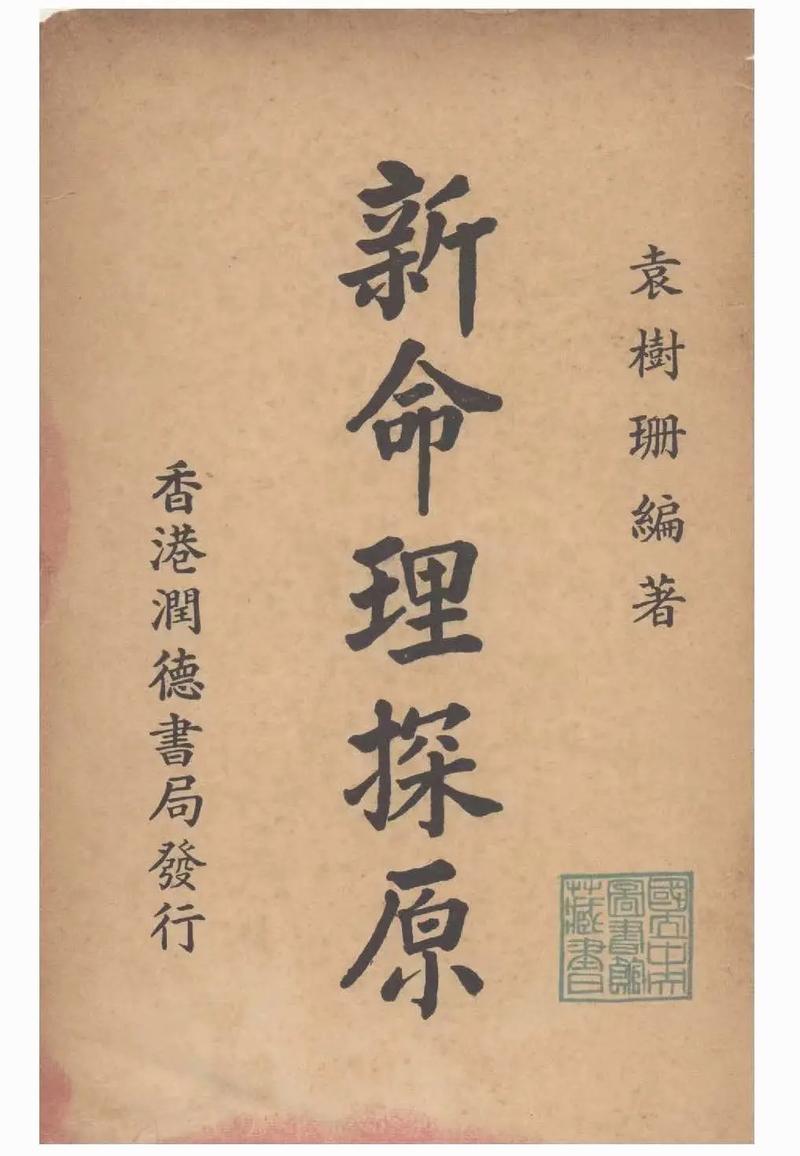 袁樹珊編著
新命理探原
香港潤德書局發行
國立中央
圖書館
藏書